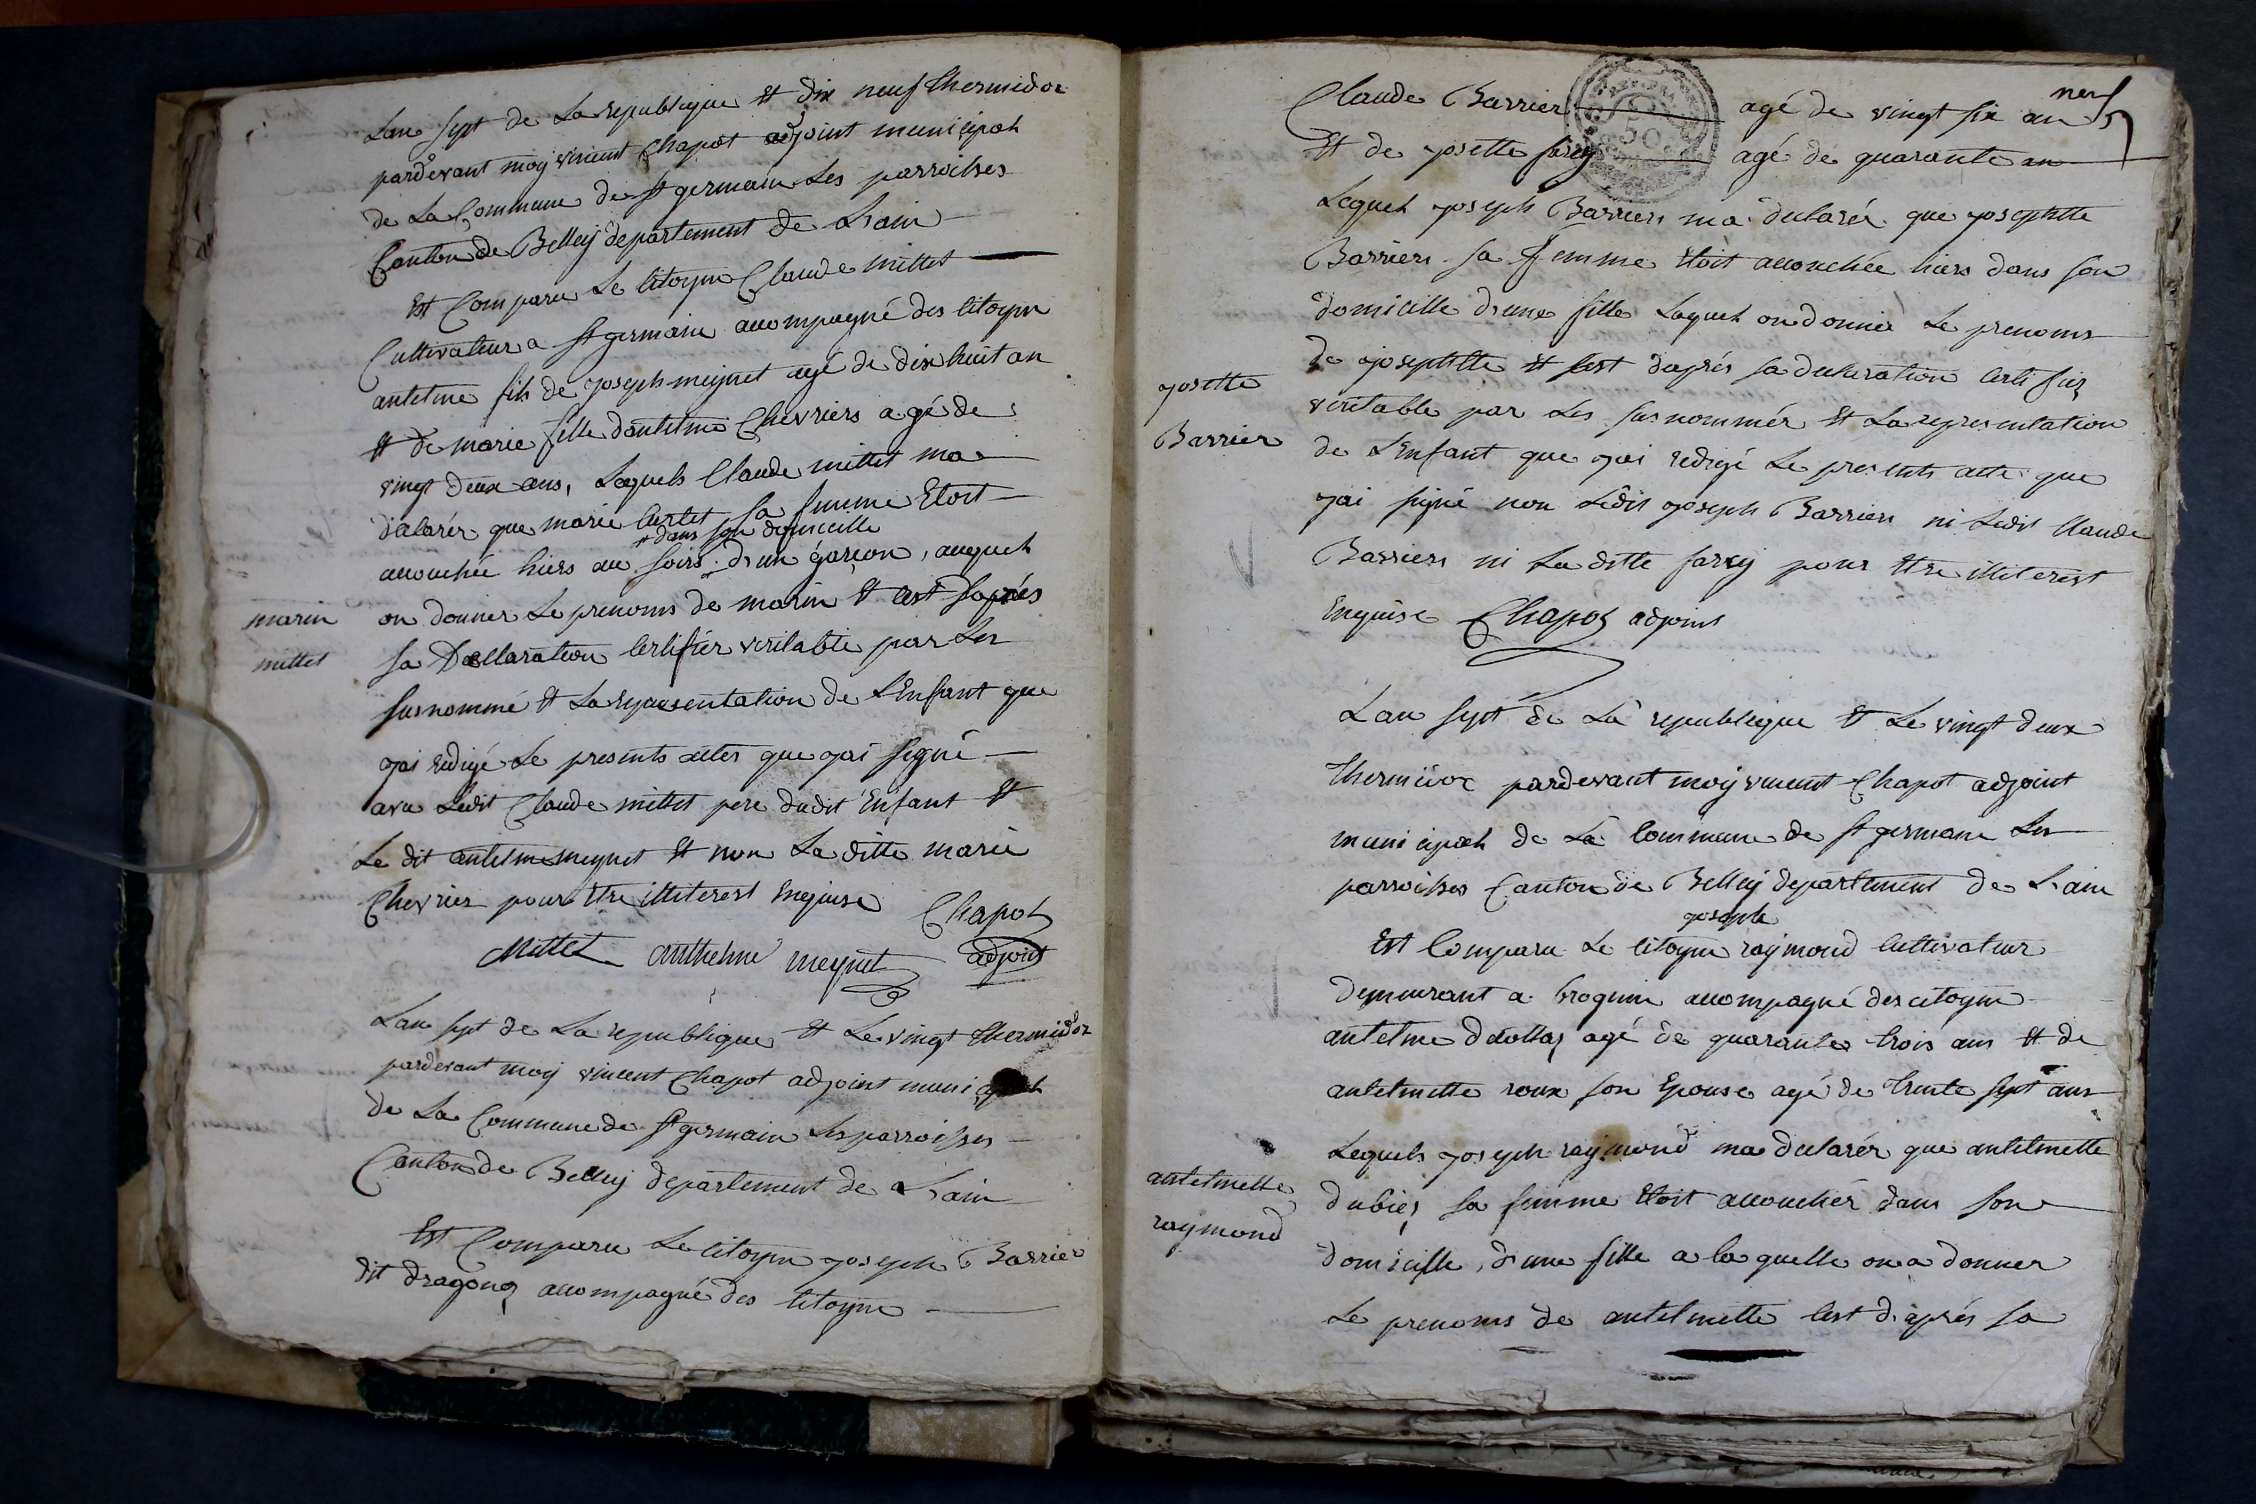 Lan sept de La republique Et dix neuf thermidor
pardevant moy vincent Chapot adjoint municipah
de La Commune de st germain Les parroisses
Canton de Belley departement de Lain
Est Comparu Le Citoyen Claude mittet
Cultivateur a st germain accompagné des Citoyen
antelme fils de joseph meynet agé de dix huit an
Et de marie fille dantelme Chevriers agé de
vingt deux ans, Lequels Claude mittet ma
dalarér que marie sa femme Etoit
dans son domicille
accouchée hiers au soirs d'un garçon, auqueh
marin
mittet
on donner Le prenoms de marin Et Cest daprés
sa Declaration Certifiér veritable par Les
surnommé Et La representation de L'Enfant que
jai redigé Le presents actes que jai signé
avec Ledit Claude mittet pere dudit Enfant Et
Le dit antelme meynet Et non La ditte marie
Chevrier pour Etre illiterest Enquise Chapot
Mittet anthelme meynet adjoint
Lan sept de La republique Et Le vingt thermidor
pardevant moy vincent Chapot adjoint municipah
de La Commune de st germain Les parroisses
Canton de Belley departement de Lain
Est Comparu Le Citoyen joseph Barrier
dit dragong accompagné des Citoyen
ner
Claude Barrier agé de vingt six an
Et de josette farcy agé de quarante an
Lequeh joseph Barriers ma declarée que josephtte
Barriers sa femme Etoit accouchée hiers dans son
domicille d'une fille Laqueh on donnée Le prenoms
josette
Barrier
de josephtte Et Cest daprés sa declaration Certifiez
veritable par Les surnommér Et La representation
de L'Enfant que jai redigé Le presents acte que
jai signé non Ledit joseph Barriers ni Ledit Claude
Barriers ni La ditte farcy pour Etre illiterest
Enquise Chapot adjoint
Lan sept de La republique Et Le vingt deux
thermidor pardevant moy vincent Chapot adjoint
municipah de La Commune de st germain Les
parroisses Canton de Belley departement de Lain
joseph
Est Comparu Le Citoyen raymond Cultivateur
demeurant a brognin accompagné des citoyen
antelme agé de quarante trois ans Et de
antelmette roux son Epouse agé de trente sept ans
Lequels joseph raymond ma declarér que antelmette
antelmette
raymond
dubiez sa femme Etoit accouchér dans son
domicille, d'une fille a la quelle on a donner
Le prenoms de antelmette Cest d'aprés sa